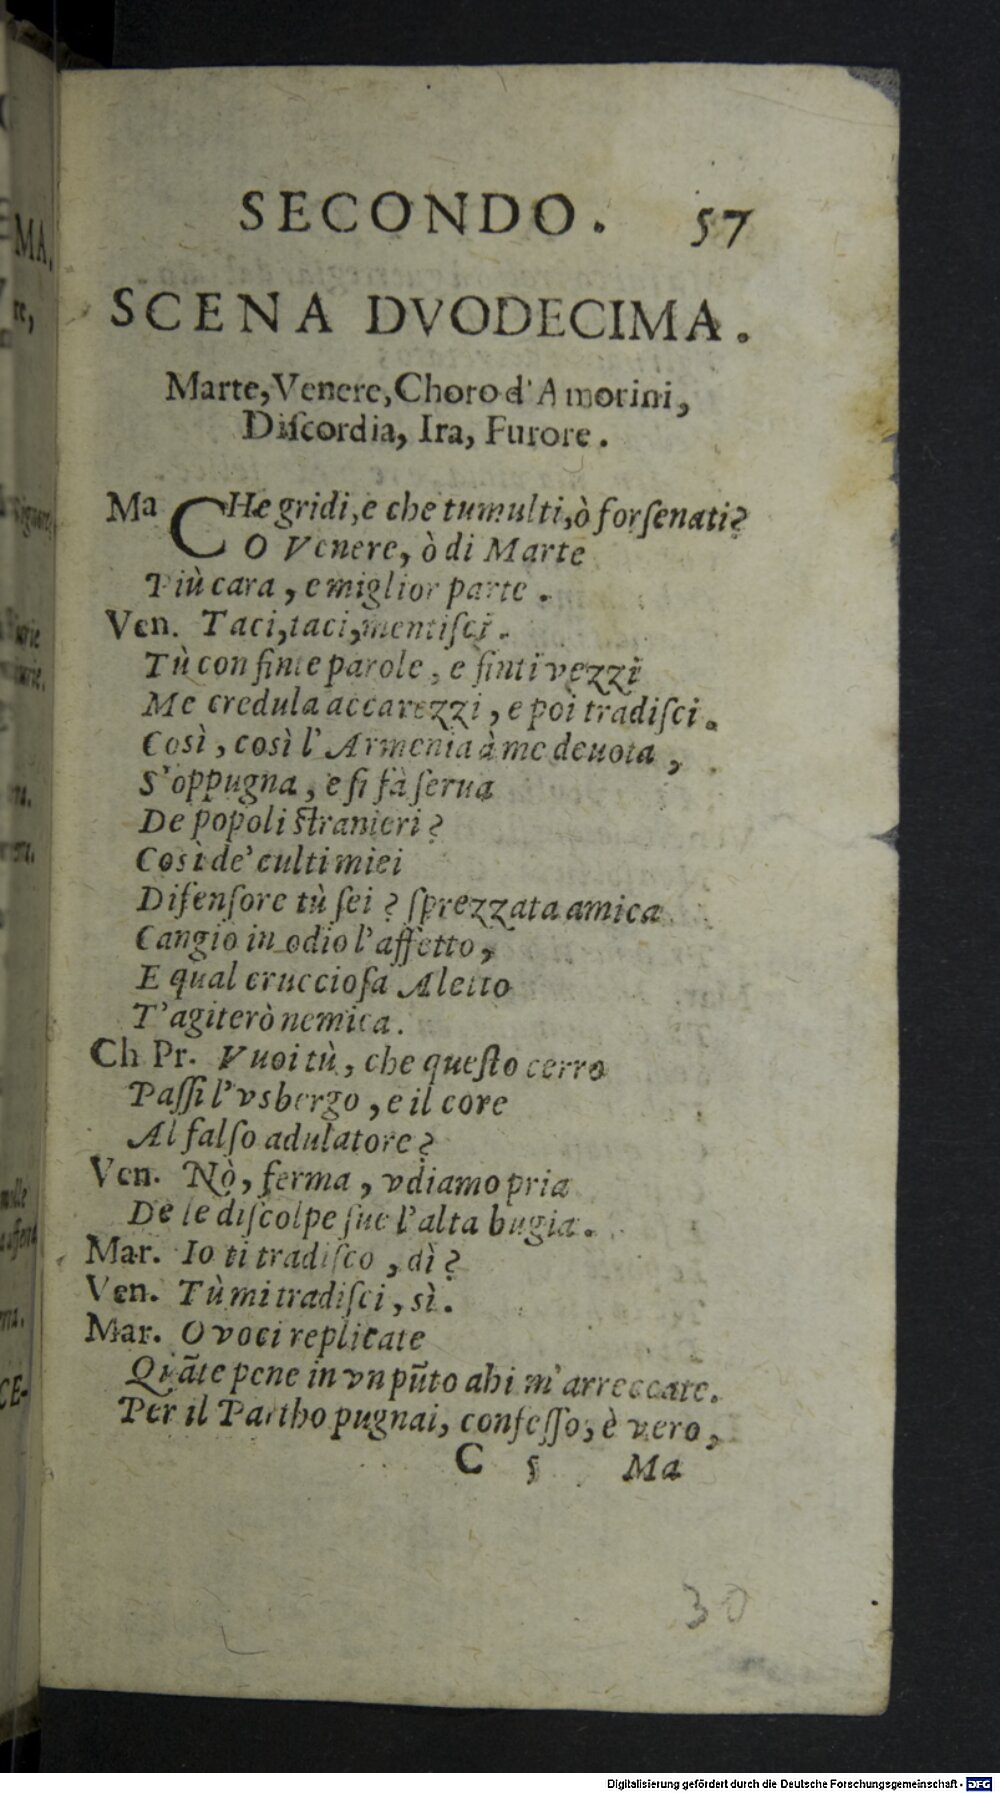 SECONDO. 57
SCENA DVODECIMA.
Marte, Venere, Choro d'Amorini,
Diſcordia, Ira, Furore.
Ma CHe gridi, e che tumulti, ò forſenati?
O Venere, ò di Marte
Più cara, e miglior parte.
Ven. Taci, taci, mentiſci.
Tù con finte parole, e finti vezzi
Me credula accarezzi, e poi tradiſci.
Così, così l'Armenia à me deuota,
S'oppugna, e ſi fà ſerua
De popoli ſtranieri?
Così de' culti miei
Difenſore tù ſei? ſprezzata amica
Cangio in odio l'affetto,
E qual cruccioſa Aletto
T'agiterò nemica.
Ch Pr. Vuoi tù, che queſto cerro
Paſſi l'vsbergo, e il core
Al falſo adulatore?
Ven. Nò, ferma, vdiamo pria
De le diſcolpe ſue l'alta bugia.
Mar. Io ti tradiſco, dì?
Ven. Tù mi tradiſci, sì.
Mar. O voci replicate
Quāte pene in vn pūto ahi m'arreccate.
Per il Partho pugnai, confeſſo, è vero,
C 5 Ma
30
MA.
re,
CE-
Digitalisierung gefördert durch die Deutsche Forschungsgemeinschaft - DFG